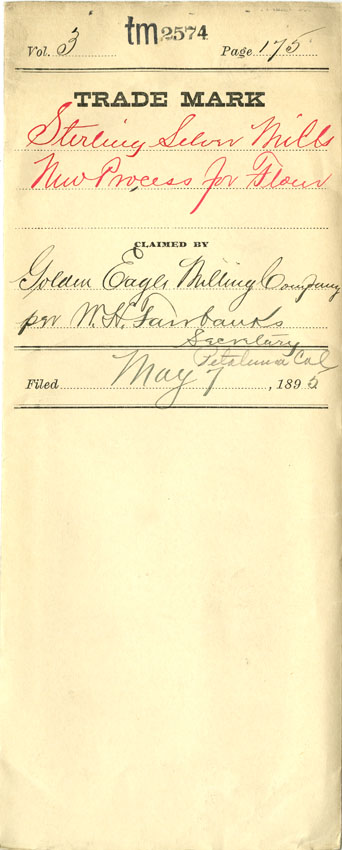 Vol. 3 tm 2574 Page 175
TRADE MARK
Sterling Silver Mills
New Process for Flour
CLAIMED BY
Golden Eagle Milling Company
per W. H. Fairbanks
Secretary
Petaluma Cal
Filed May 7, 1895